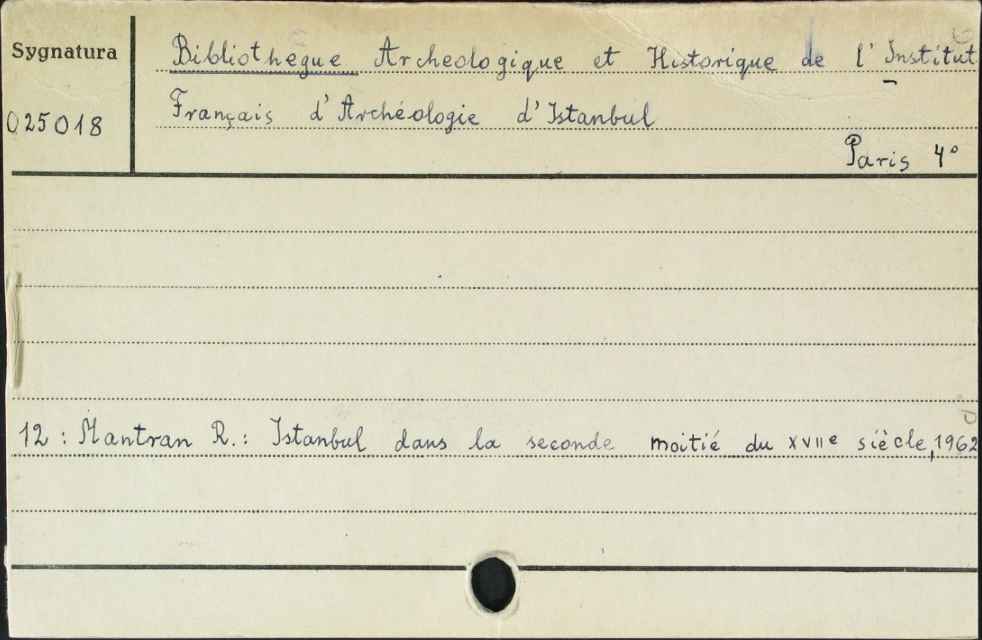 Sygnatura
025018
Bibliotheque Archeologique et Historique de l' Institut
Français d'Archéologie d'Istanbul
Paris 4°
12 : Mantran R.: Istanbul dans la seconde moitié du XVIIe siècle, 1962